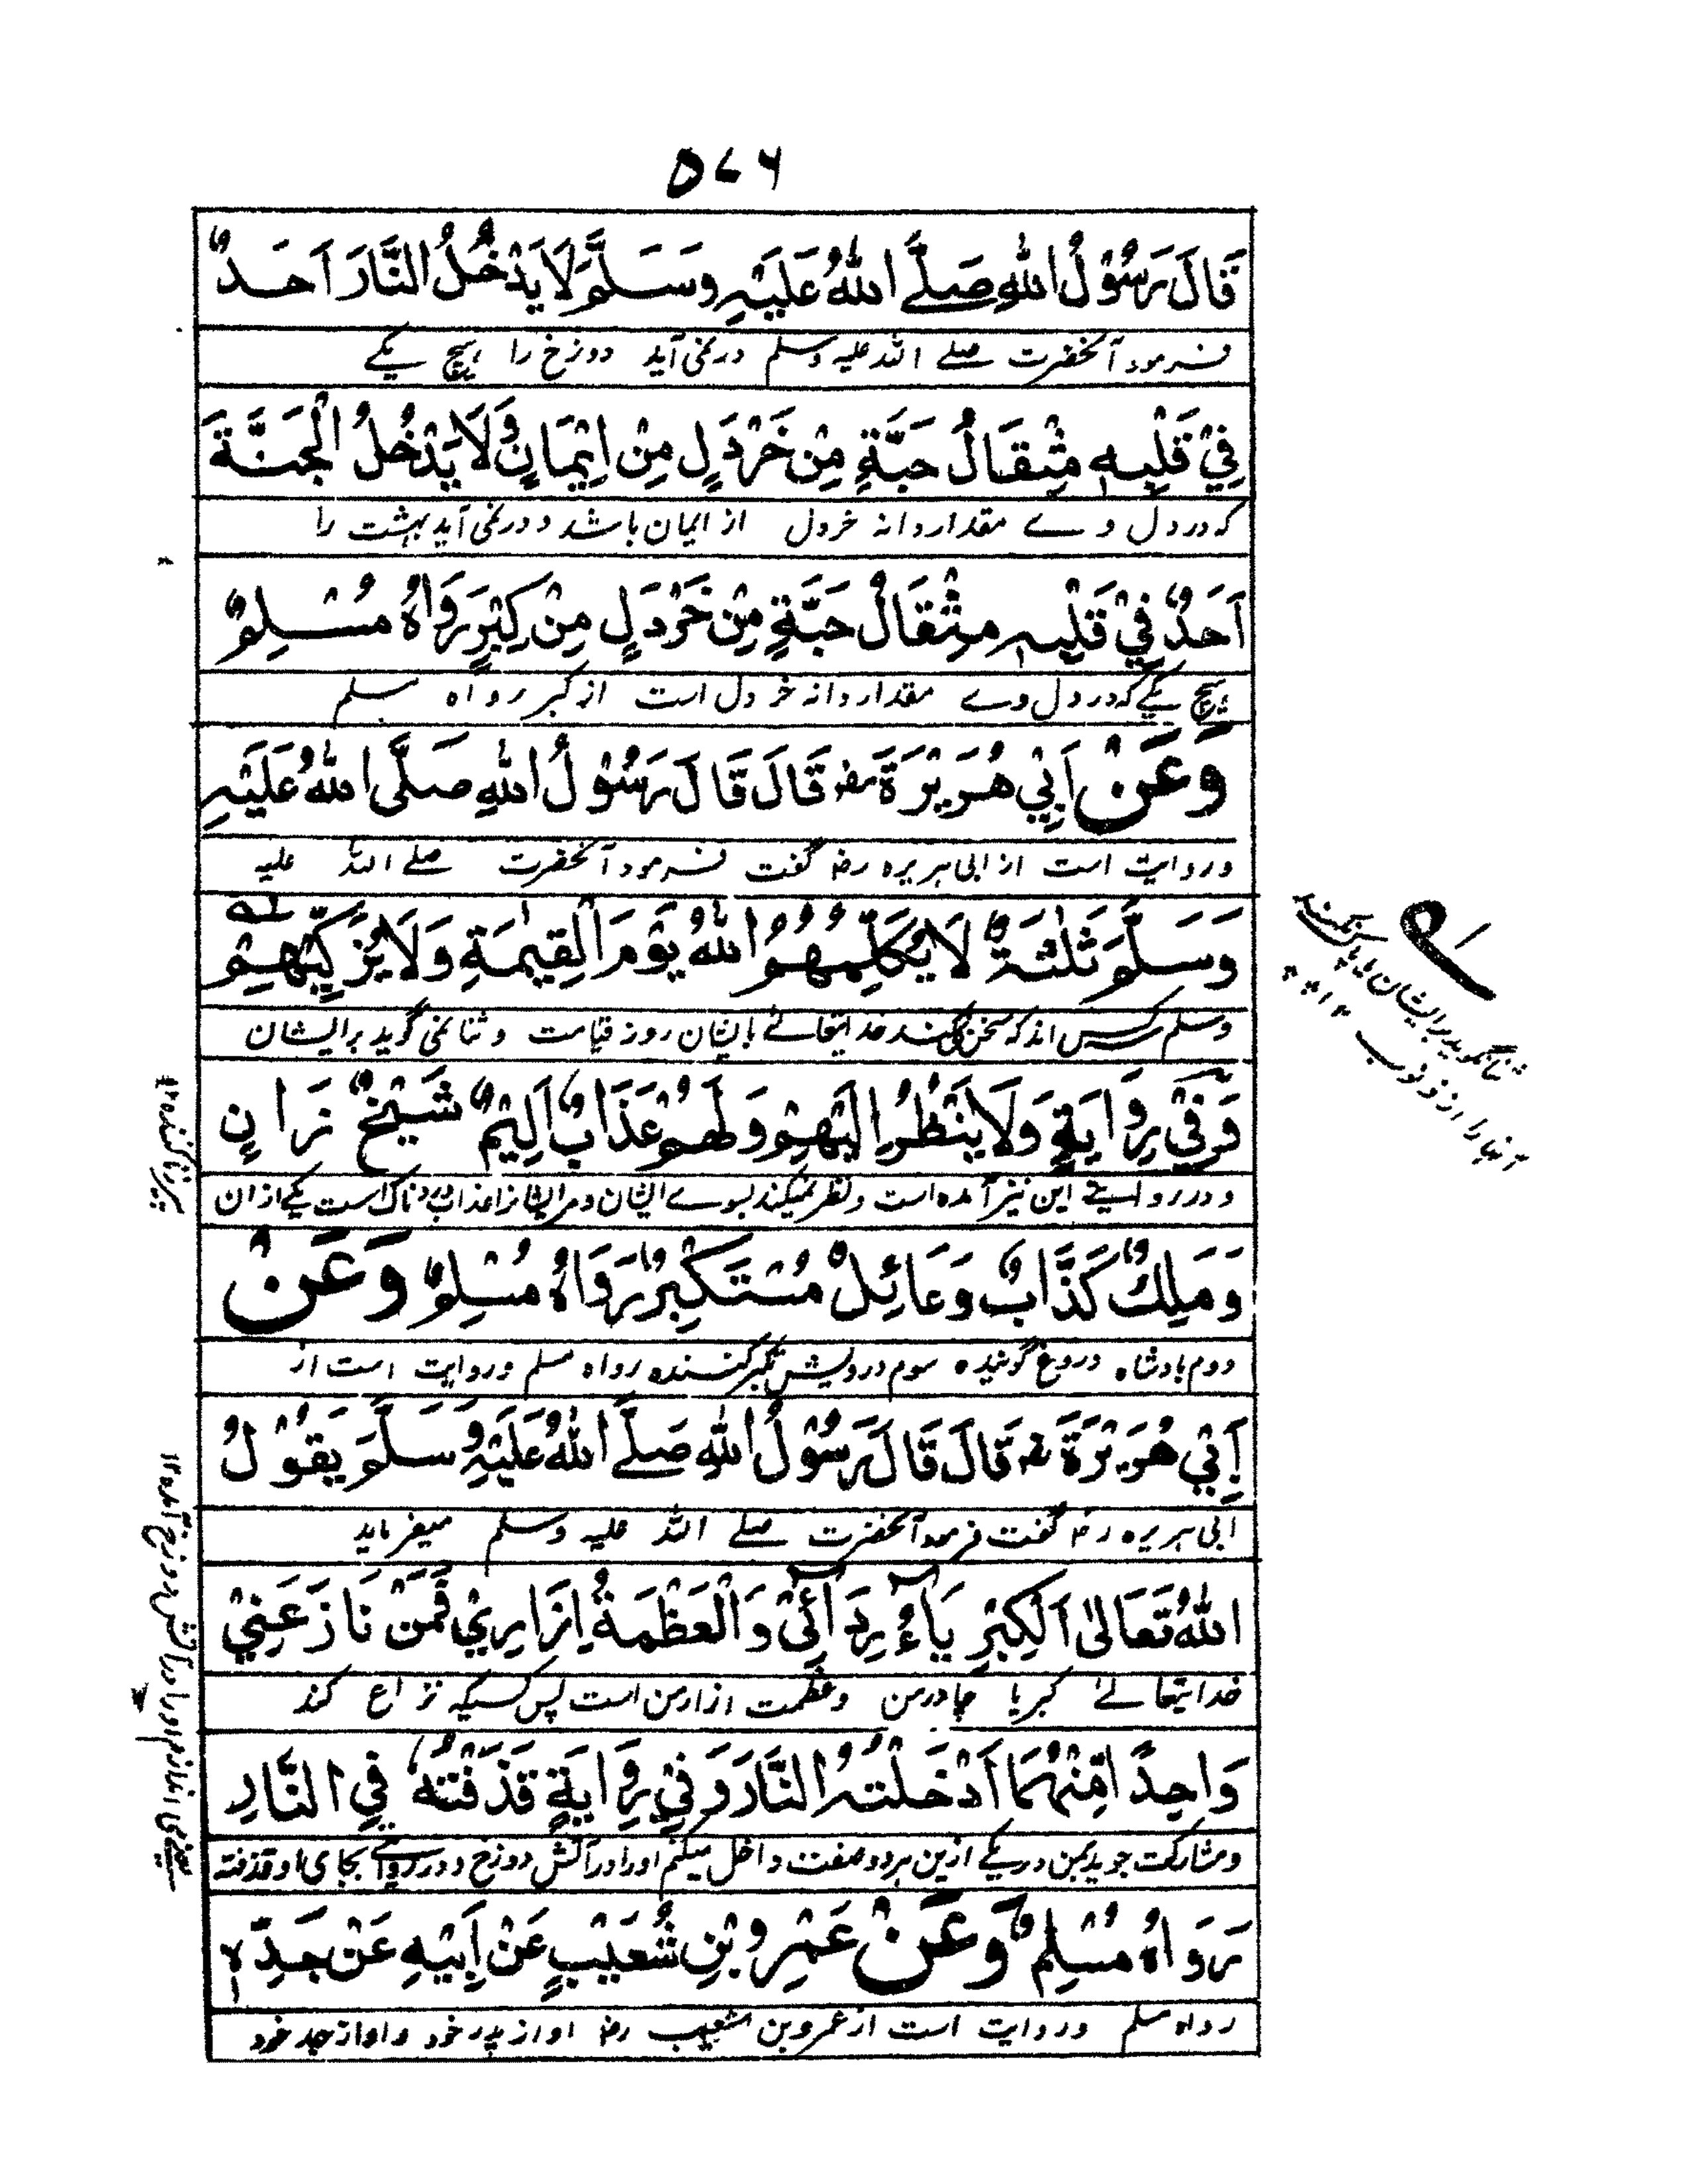 ۵۷۶
قَالَ رَسُوْلُ اللهِ صَلَّے اللهُ عَلَيْهِ وَسَلَّمَ لَا يَدْخُلُ النَّارَ اَحَدٌ
فرمود آنحضرت صلے اللہ علیہ وسلم در نمی آید دوزخ را ہیچ یکے
فِيْ قَلْبِهٖ مِثْقَالُ حَبَّةٍ مِنْ خَرْدَلٍ مِنْ اِيْمَانٍ وَّلَا يَدْخُلُ الْجَنَّةَ
کہ در دل وے مقدار دانہ خردل از ایمان باشد و در نمی آید بہشت را
اَحَدٌ فِيْ قَلْبِهٖ مِثْقَالُ حَبَّةٍ مِنْ خَرْدَلٍ مِنْ كِبْرٍ رَوَاهُ مُسْلِمٌ
ہیچ یکے کہ در دل وے مقدار دانہ خردل است از کبر رواہ مسلم
وَعَنْ اَبِيْ هُرَيْرَةَ رضہ قَالَ قَالَ رَسُوْلُ اللهِ صَلَّى اللهُ عَلَيْهِ
وروایت است از ابی ہریرہ رضہ گفت فرمود آنحضرت صلے اللہ علیہ
وَسَلَّمَ ثَلٰثَةٌ لَا يُكَلِّمُهُمُ اللهُ يَوْمَ الْقِيٰمَةِ وَلَا يُزَكِّيْهِمْ
وسلم سہ کس اند کہ سخن نمی کند خدایتعالے باایشان روز قیامت و ثنا نمی گوید بر ایشان
وَفِيْ رِوَايَةٍ وَلَا يَنْظُرُ اِلَيْهِمْ وَلَهُمْ عَذَابٌ اَلِيْمٌ شَيْخٌ زَانٍ
و در روایتے این نیز آمدہ است و نظر نمیکند بسوے ایشان و مر ایشانرا عذاب دردناک است یکے ازان
وَمَلِكٌ كَذَّابٌ وَعَائِلٌ مُسْتَكْبِرٌ رَوَاهُ مُسْلِمٌ وَعَنْ
دوم بادشاہ دروغ گویندہ سوم درویش تکبر کنندہ رواہ مسلم وروایت است از
اَبِيْ هُرَيْرَةَ رضہ قَالَ قَالَ رَسُوْلُ اللهِ صَلَّے اللهُ عَلَيْهِ وَسَلَّمَ يَقُوْلُ
ابی ہریرہ رضہ گفت فرمود آنحضرت صلے اللہ علیہ وسلم میفرماید
اللهُ تَعَالٰى اَلْكِبْرِيَاءُ رِدَآئِيْ وَالْعَظْمَةُ اِزَارِيْ فَمَنْ نَازَعَنِيْ
خدایتعالےٰ کبریا چادر من وعظمت ازار من است پس کسیکہ نزاع کند
وَاحِدًا مِّنْهُمَا اَدْخَلْتُهُ النَّارَ وَفِيْ رِوَايَةٍ قَذَفْتُهُ فِي النَّارِ
ومشارکت جوید بمن در یکے ازین ہر دو صفت داخل میکنم اورا در آتش دوزخ و در روایتے بجای او قذفتہ
رَوَاهُ مُسْلِمٌ وَعَنْ عَمْرِو بْنِ شُعَيْبٍ عَنْ اَبِيْهِ عَنْ جَدِّهٖ
رواہ مسلم وروایت است از عمرو بن شعیب رضہ او از پدر خود و او از جد خود
ثنا نگوید بر ایشان یا پاک نکند
آنہا را از ذنوب ۱۲
پیر زنا کنندہ ۱۲
یعنی می اندازم اورا در آتش دوزخ آمدہ ۱۲